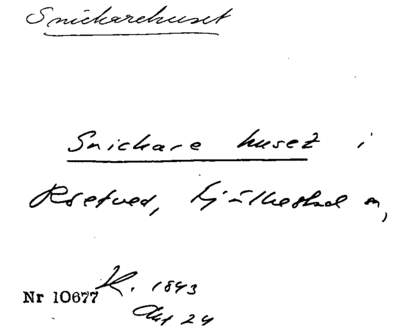 Snickarehuset
Snickare huset i
Rsetved, Kjülkestad n,
Nr 10677 K. 1843
Akt 24